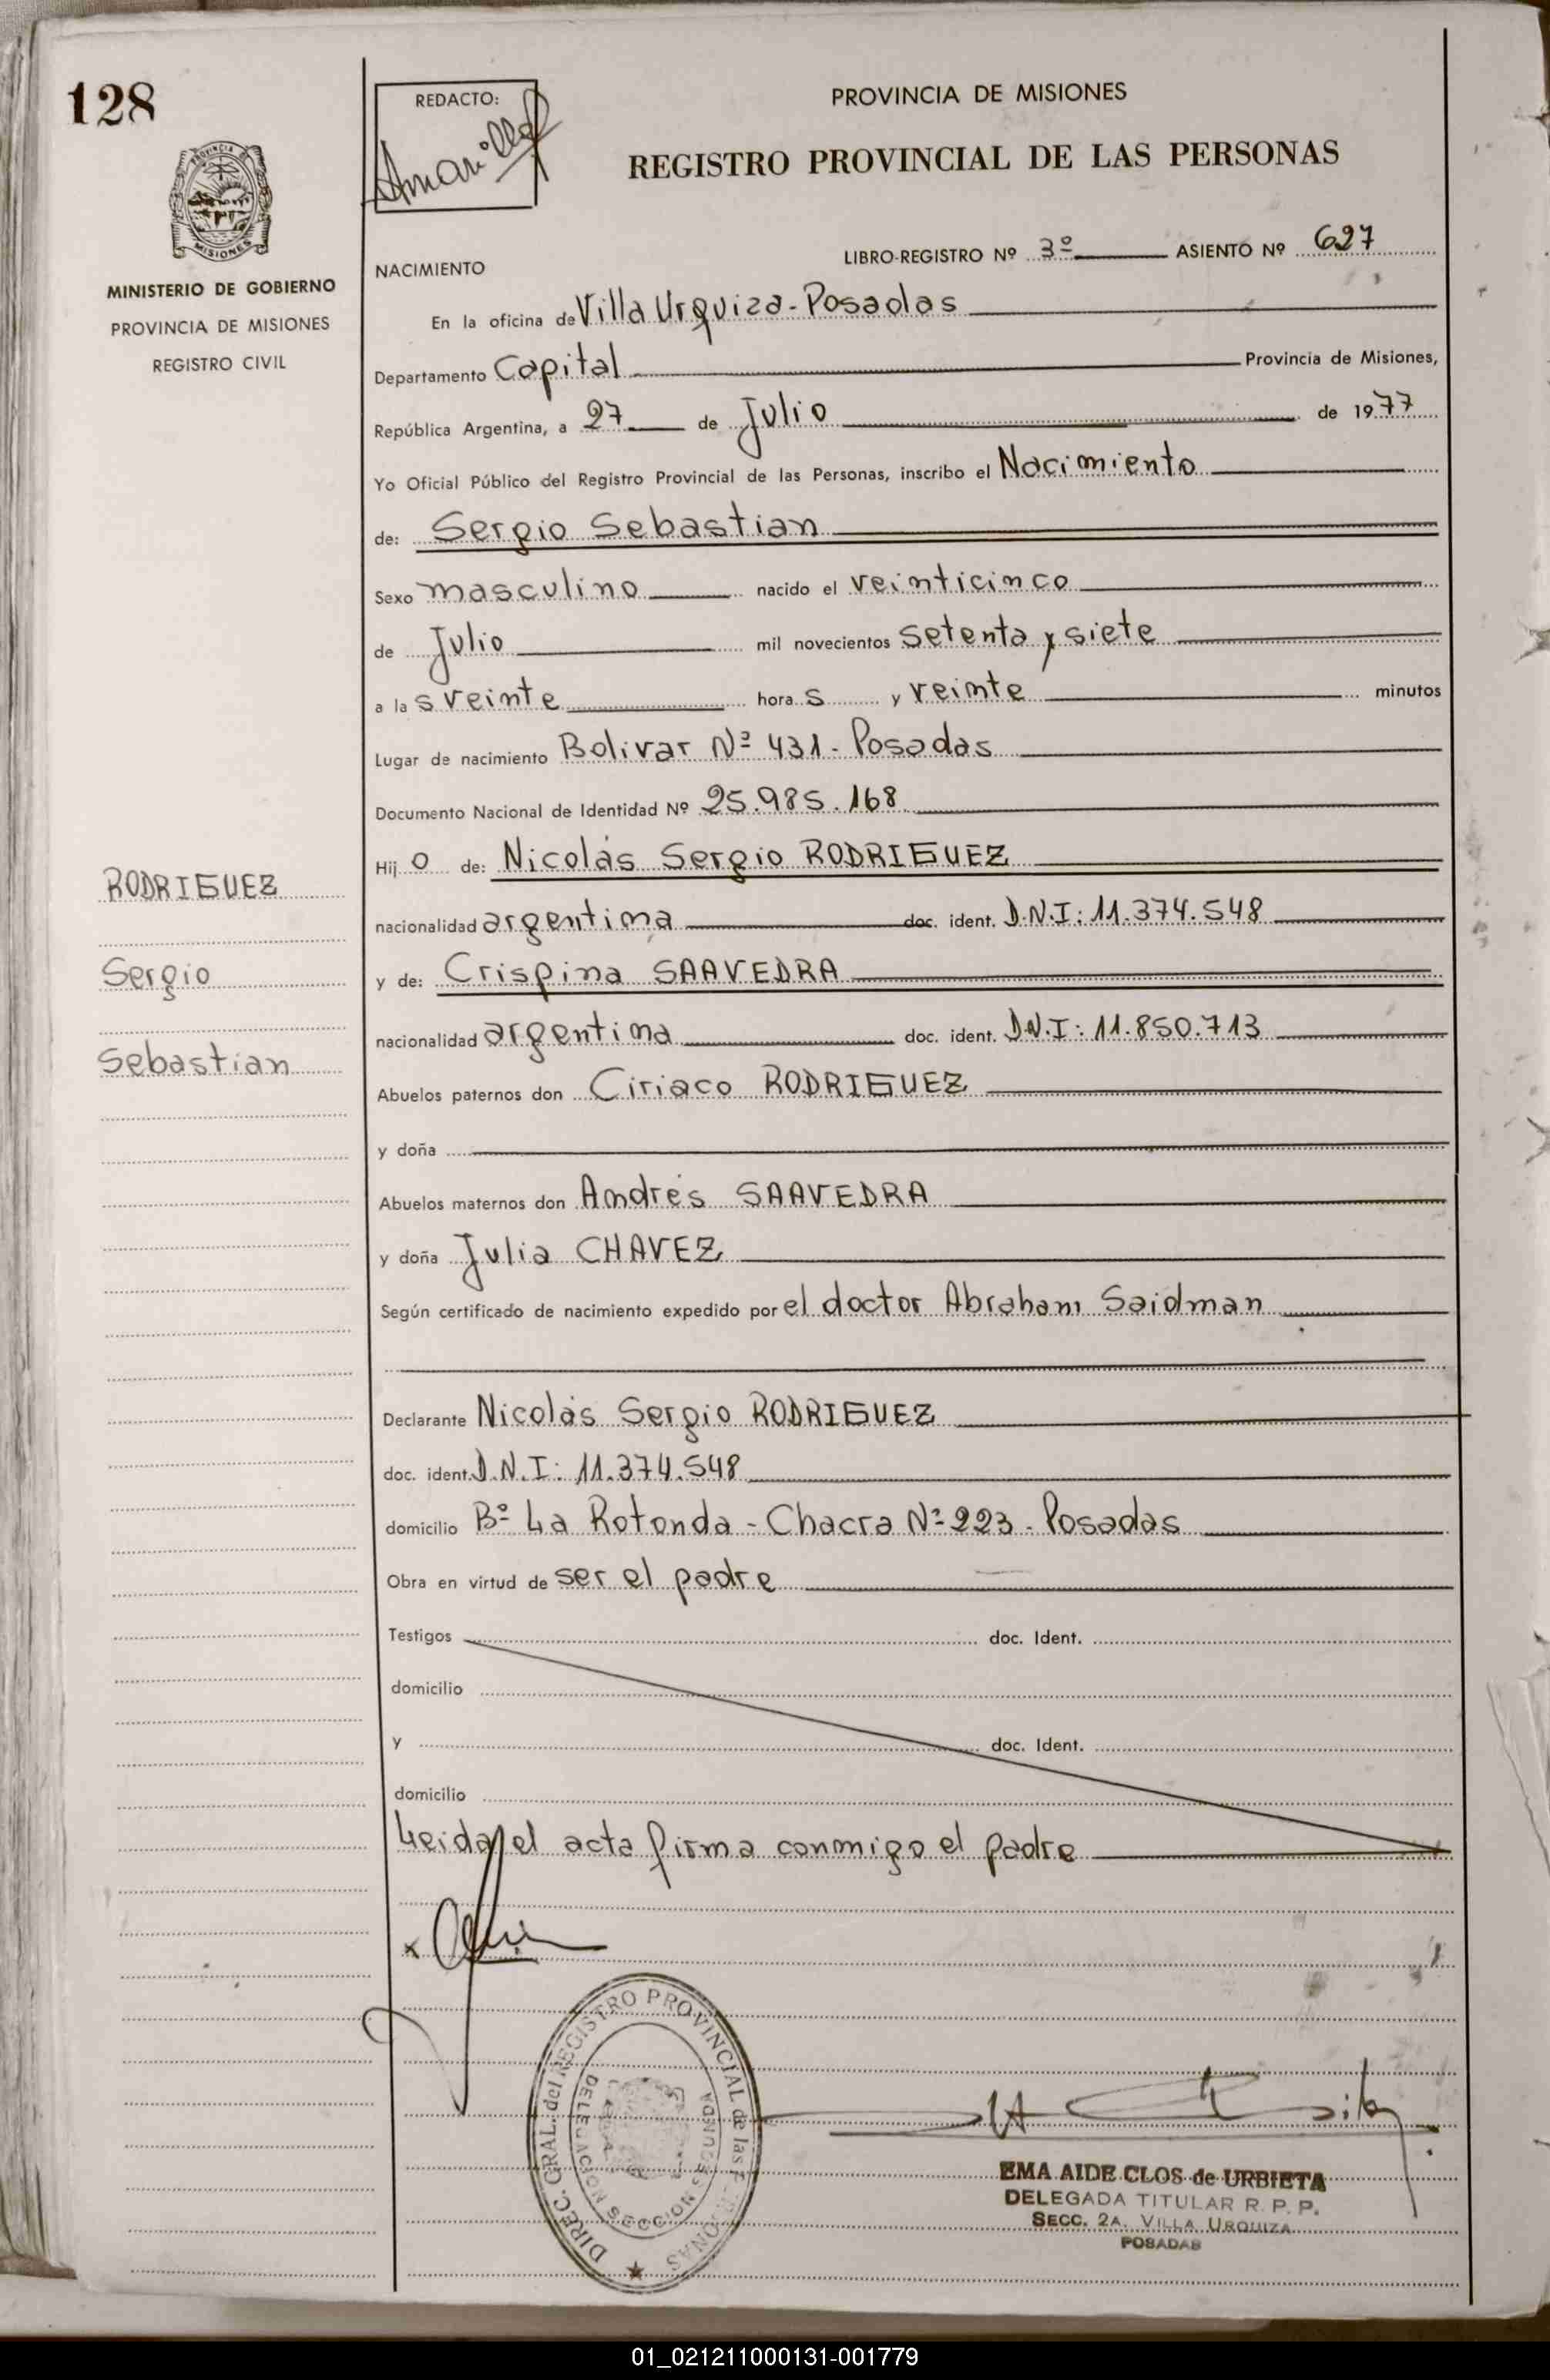 128
REDACTO:
Amarilla
PROVINCIA DE MISIONES
REGISTRO PROVINCIAL DE LAS PERSONAS
PROVINCIA DE
MISIONES
MINISTERIO DE GOBIERNO
PROVINCIA DE MISIONES
REGISTRO CIVIL
LIBRO-REGISTRO Nº 3º ASIENTO Nº 627
NACIMIENTO
En la oficina de Villa Urquiza - Posadas
Departamento Capital Provincia de Misiones,
República Argentina, a 27 de Julio de 1977
Yo Oficial Público del Registro Provincial de las Personas, inscribo el Nacimiento
de: Sergio Sebastian
Sexo masculino nacido el veinticinco
de Julio mil novecientos setenta y siete
a las veinte horas y veinte minutos
Lugar de nacimiento Bolivar Nº 431 - Posadas
Documento Nacional de Identidad Nº 25.985.168
Hijo de: Nicolás Sergio RODRIGUEZ
nacionalidad argentina doc. ident. D.N.I: 11.374.548
y de: Crispina SAAVEDRA
nacionalidad argentina doc. ident. D.N.I: 11.850.713
Abuelos paternos don Ciriaco RODRIGUEZ
y doña
Abuelos maternos don Andrés SAAVEDRA
y doña Julia CHAVEZ
Según certificado de nacimiento expedido por el doctor Abraham Saidman
Declarante Nicolás Sergio RODRIGUEZ
doc. ident. D.N.I: 11.374.548
domicilio Bº La Rotonda - Chacra Nº 223 - Posadas
Obra en virtud de ser el padre
Testigos doc. Ident.
domicilio
y doc. Ident.
domicilio
Leida el acta firma conmigo el padre
RODRIGUEZ
Sergio
Sebastian
x
DIREC. GRAL. del REGISTRO PROVINCIAL de las PERSONAS
DELEGACION SECCION SEGUNDA
EMA AIDE CLOS de URBIETA
DELEGADA TITULAR R. P. P.
SECC. 2A. VILLA URQUIZA
POSADAS
01_021211000131-001779